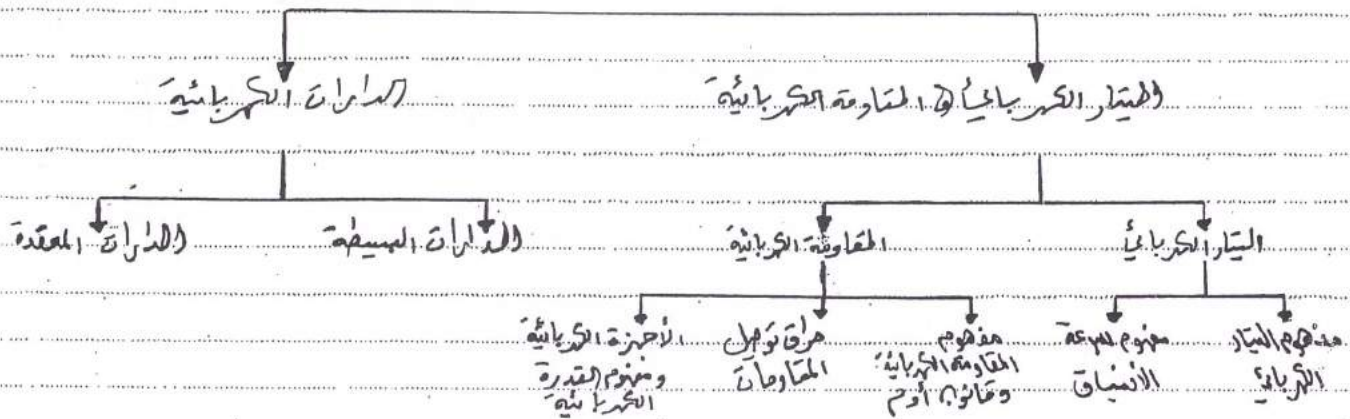 التيار الكهربائي و المقاومة الكهربائية
الدارات الكهربائية
التيار الكهربائي
المقاومة الكهربائية
الدارات البسيطة
الدارات المعقدة
مفهوم التيار
الكهربائي
مفهوم سرعة
الأنسياق
مفهوم
المقاومة الكهربائية
وقانون أوم
طرق توصيل
المقاومات
الأجهزة الكهربائية
ومفهوم القدرة
الكهربائية